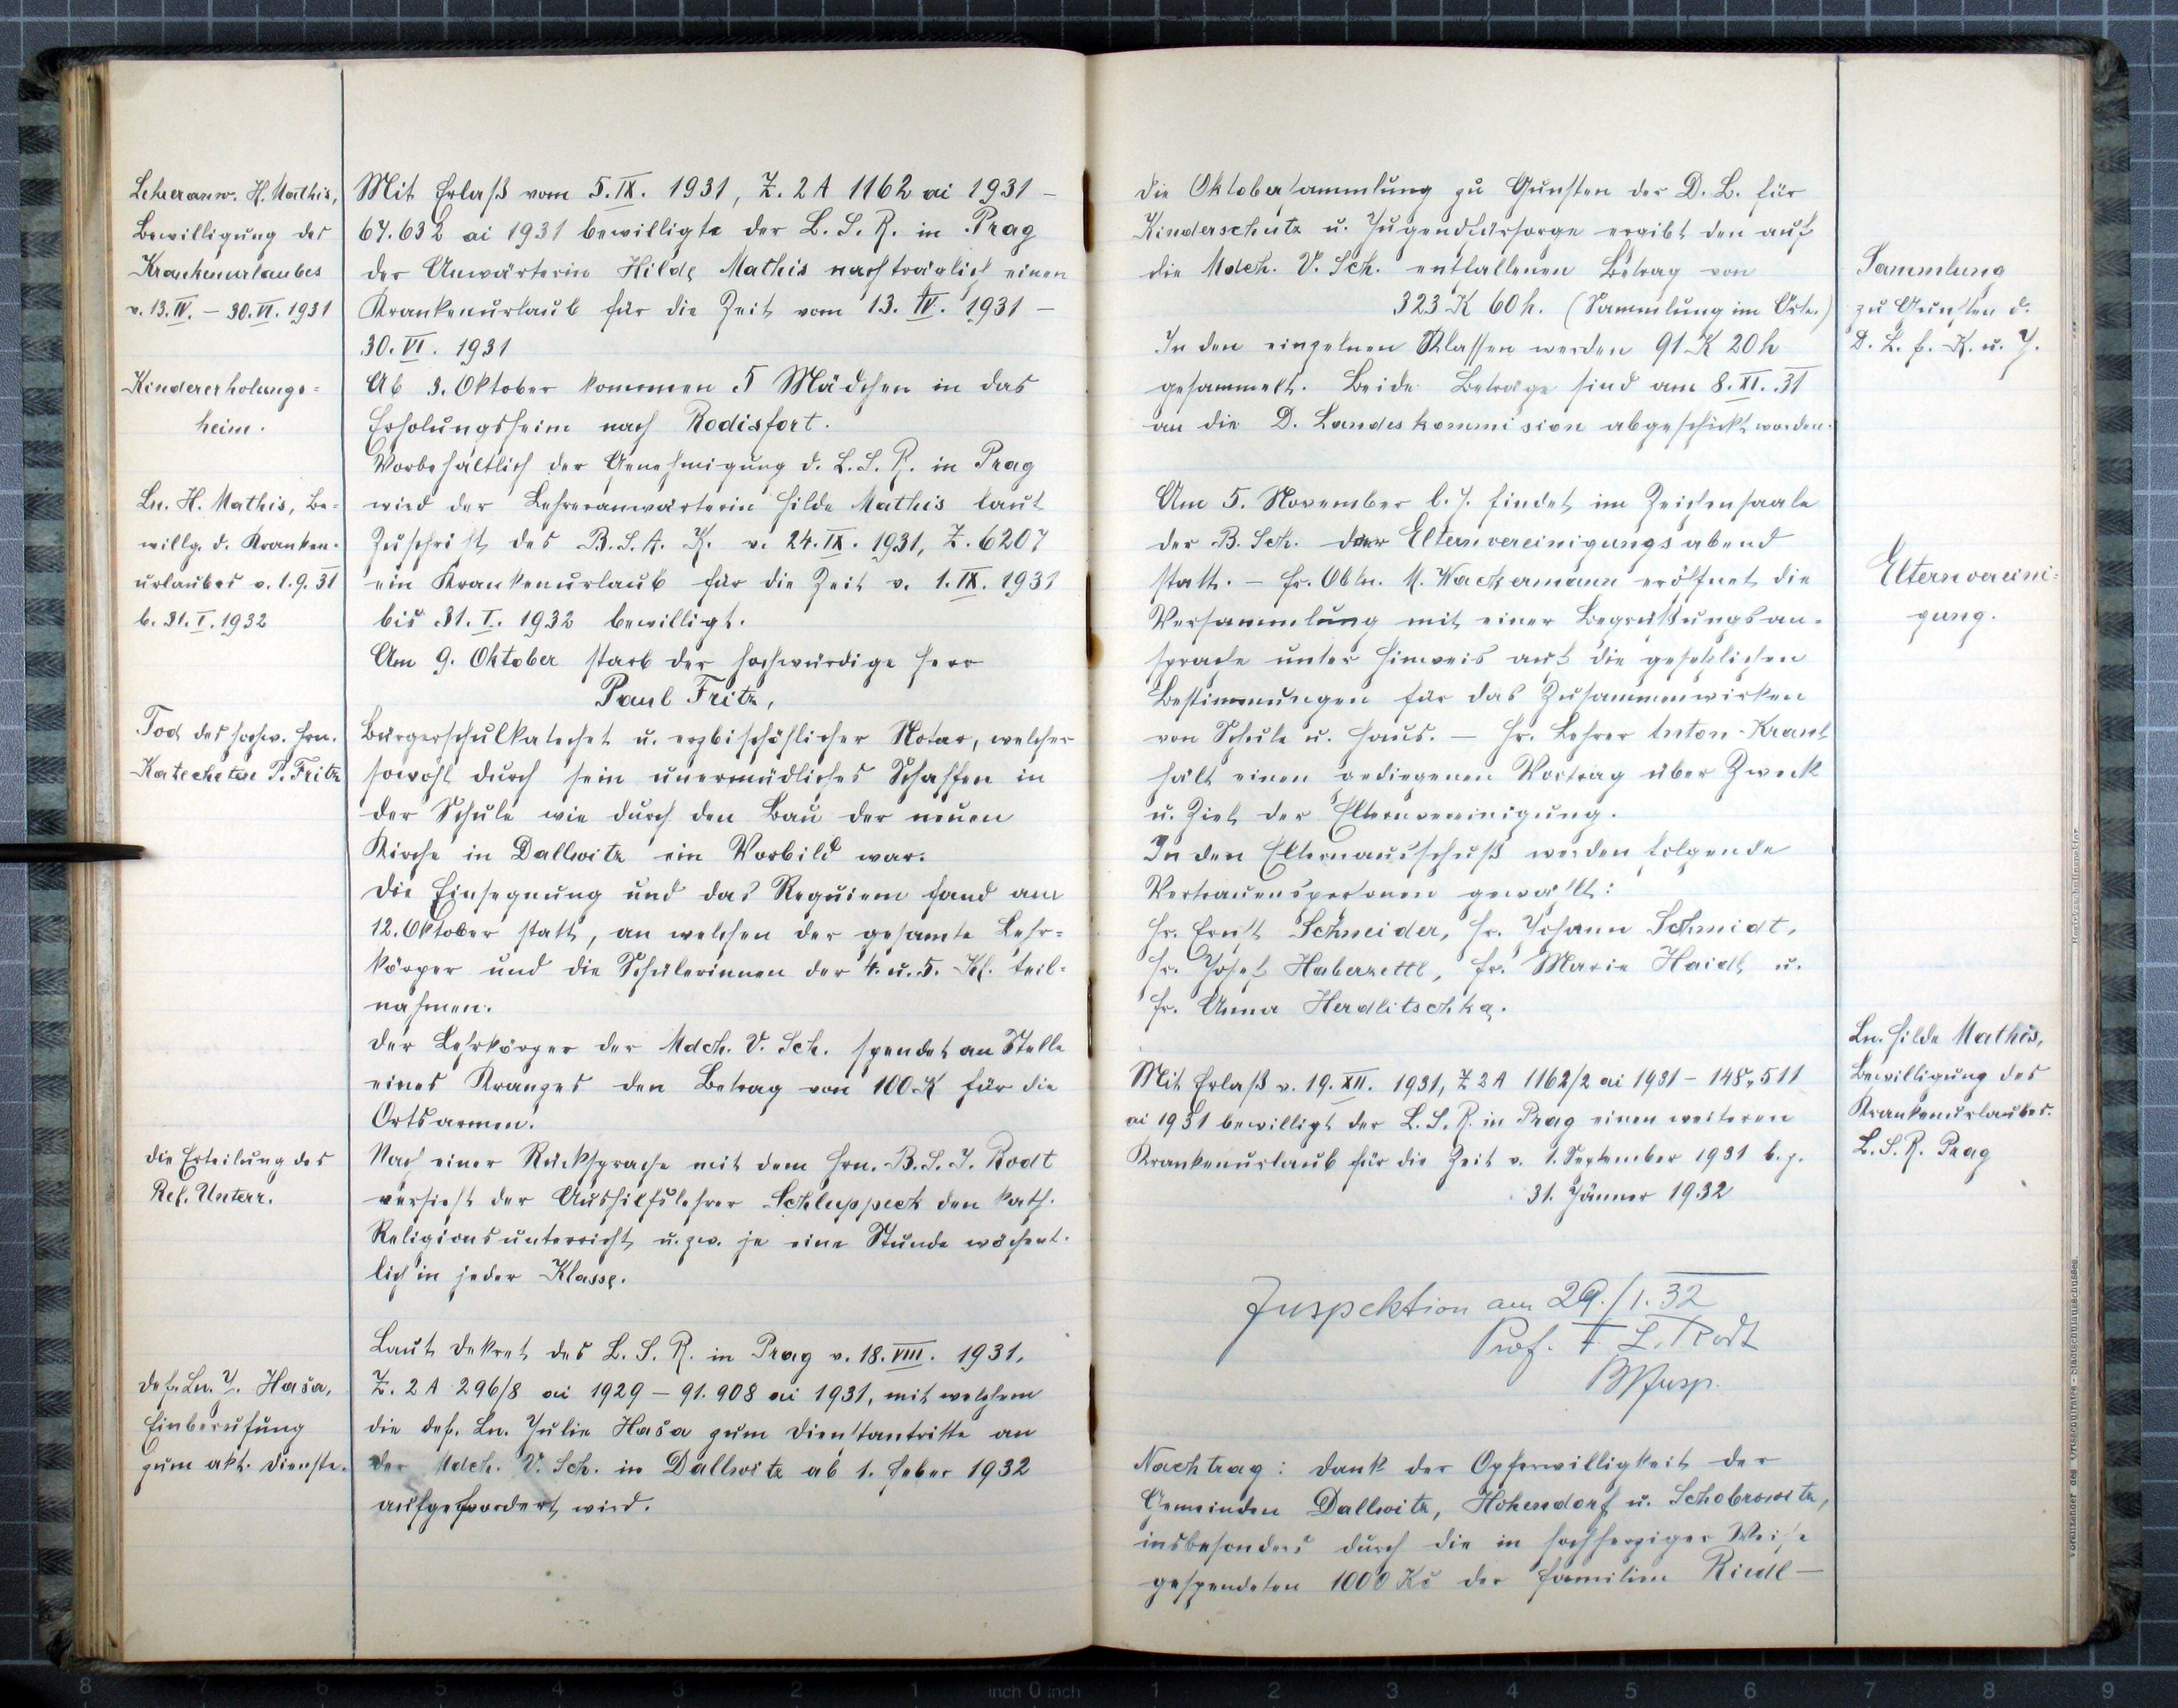 Lehreranw. H. Mathis,
Bewilligung des
Krankenurlaubes
v. 13. IV. – 30. VI. 1931
Mit Erlaß vom 5. IX. 1931, Z. 2 A 1162 ai 1931 –
67.632 ai 1931 bewilligte der L. S. R. in Prag
der Anwärterin Hilde Mathis nachträglich einen
Krankenurlaub für die Zeit vom 13. IV. 1931 –
30. VI. 1931
Kindererholungs=
heim.
Ab 3. Oktober kommen 5 Mädchen in das
Erholungsheim nach Rodisfort.
Vorbehältlich der Genehmigung d. L. S. R. in Prag
Ln. H. Mathis, Be=
willg. d. Kranken=
urlaubes v. 1. 9. 31
b. 31. I. 1932
wird der Lehreranwärterin Hilde Mathis laut
Zuschrift des B. S. A. K. v. 24. IX. 1931, Z. 6207
ein Krankenurlaub für die Zeit v. 1. IX. 1931
bis 31. I. 1932 bewilligt.
Am 9. Oktober starb der hochwürdige Herr
Paul Fritz,
Tod des hochw. Hrn.
Katecheten P. Fritz
Bürgerschulkatechet u. erzbischöflicher Notar, welcher
sowohl durch sein unermüdliches Schaffen in
der Schule wie durch den Bau der neuen
Kirche in Dallwitz ein Vorbild war.
Die Einsegnung und das Requiem fand am
12. Oktober statt, an welchen der gesamte Lehr=
körper und die Schülerinnen der 4. u. 5. Kl. teil=
nahmen.
Der Lehrkörper der Mdch. V. Sch. spendet an Stelle
eines Kranzes den Betrag von 100 K für die
Ortsarmen.
Die Erteilung des
Rel. Unterr.
Nach einer Rücksprache mit dem Hrn. B. S. I. Rodt
versieht der Aushilfslehrer Schluppeck den kath.
Religionsunterricht u. zw. je eine Stunde wöchent=
lich in jeder Klasse.
Def. Ln. J. Haša,
Einberufung
zum akt. Dienste.
Laut Dekret des L. S. R. in Prag v. 18. VIII. 1931,
Z. 2 A 296/8 ai 1929 – 91.908 ai 1931, mit welchem
die def. Ln. Julie Haša zum Dienstantritte an
der Mdch. V. Sch. in Dallwitz ab 1. Feber 1932
aufgefordert wird.
Die Oktobersammlung zu Gunsten der D. L. für
Kinderschutz u. Jugendfürsorge ergibt den auf
die Mdch. V. Sch. entfallenen Betrag von
323 K 60 h. (Sammlung im Orte.)
In den einzelnen Klassen werden 91 K 20 h
gesammelt. Beide Beträge sind am 8. XI. 31
an die D. Landeskommision abgeschickt worden.
Sammlung
zu Gunsten d.
D. L. f. K. u. J.
Am 5. November l. J. findet im Zeichensaale
der B. Sch. der Elternvereinigungsabend
statt. – Fr. Obln. M. Wackermann eröffnet die
Versammlung mit einer Begrüßungsan=
sprache unter Hinweis auf die gesetzlichen
Bestimmungen für das Zusammenwirken
von Schule u. Haus. – Hr. Lehrer Anton Kraut
hält einen gediegenen Vortrag über Zweck
u. Ziel der Elternvereinigung.
In den Elternausschuß werden folgende
Vertrauenspersonen gewählt:
Hr. Ernst Schneider, Hr. Johann Schmidt,
Hr. Josef Haberzettl, Fr. Marie Haidl u.
Fr. Anna Herdlitschka.
Elternvereini=
gung.
Mit Erlaß v. 19. XII. 1931, Z 2 A 1162/2 ai 1931 – 148.511
ai 1931 bewilligt der L. S. R. in Prag einen weiteren
Krankenurlaub für die Zeit v. 1. September 1931 b. z.
31. Jänner 1932
Ln. Hilde Mathis,
Bewilligung des
Krankenurlaubes.
L. S. R. Prag
Inspektion am 29./1. 32
Prof. F. L. Rodt
BSchinsp.
Nachtrag: Dank der Opferwilligkeit der
Gemeinden Dallwitz, Hohendorf u. Schobrowitz,
insbesonders durch die in hochherziger Weise
gespendeten 1000 Kč der Familien Riedl –
Vorsitzender des Ortsschulrates - Stadtschulausschusses.